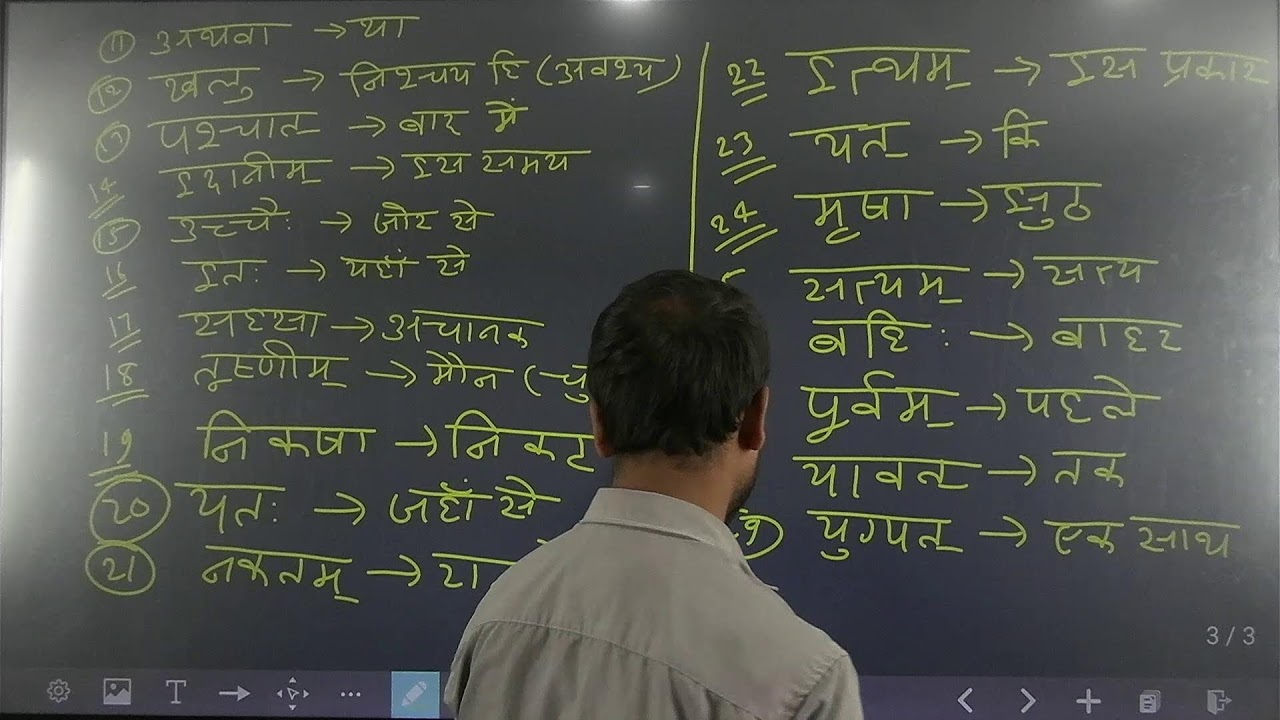 11 अथवा → या
12 खलु → निश्चय हि (अवश्य)
13 पश्चात् → बाद में
14 इदानीम् → इस समय
15 उच्चैः → जोर से
16 इतः → यहाँ से
17 सहसा → अचानक
18 तूष्णीम् → मौन (
19 निकषा → निकट
20 यतः → जहाँ से
21 नक्तम् →
22 इत्थम् → इस प्रकार
23 यत् → कि
24 मृषा → झुठ
सत्यम् → सत्य
बहिः → बाहर
पूर्वम् → पहले
यावत् → तक
युग्पत् → एक साथ
3 / 3
T